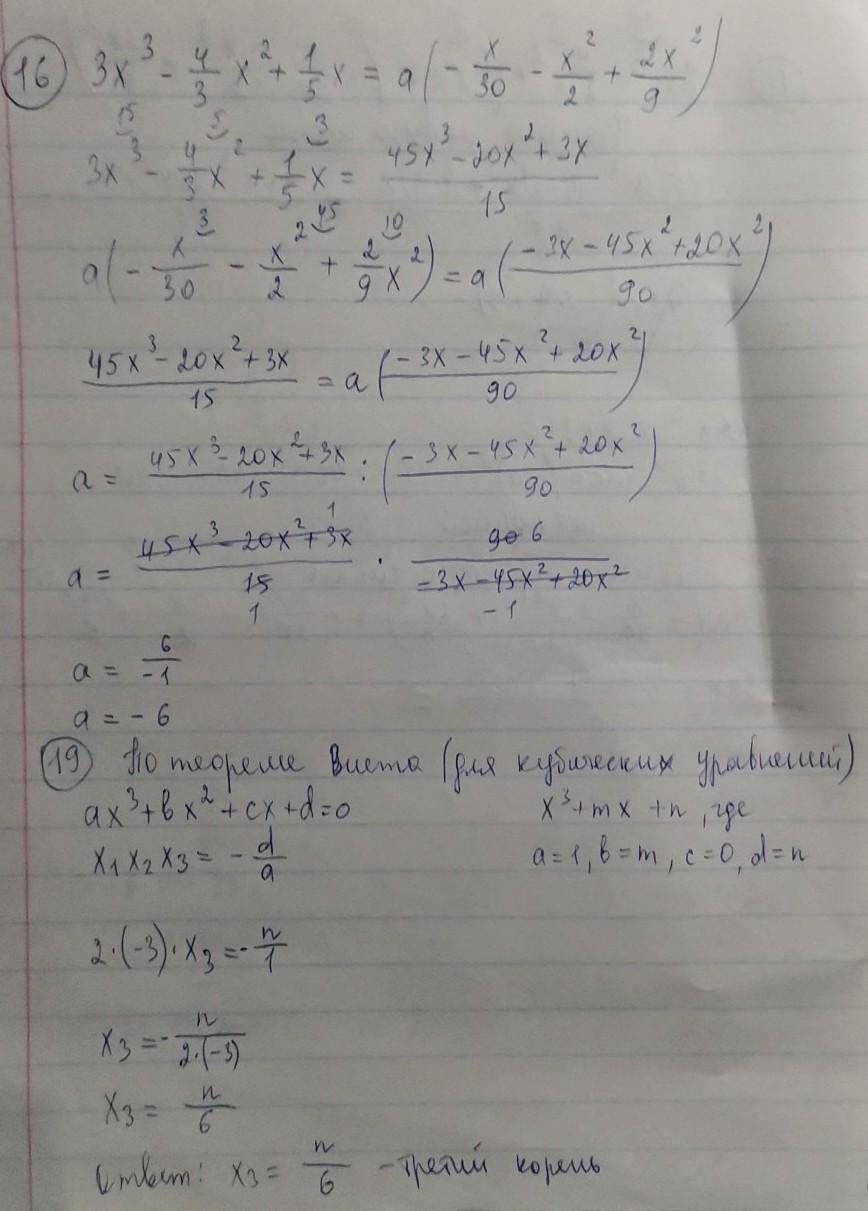 16 3x³ - 4/3 x² + 1/5 x = a(- x/30 - x²/2 + 2x²/9)
15 5 3
3x³ - 4/3 x² + 1/5 x = (45x³ - 20x² + 3x)/15
3 45 10
a(- x/30 - x²/2 + 2/9 x²) = a((-3x - 45x² + 20x²)/90)
(45x³ - 20x² + 3x)/15 = a((-3x - 45x² + 20x²)/90)
a = (45x³ - 20x² + 3x)/15 : ((-3x - 45x² + 20x²)/90)
1
a = (45x³ - 20x² + 3x)/15 · 90 6/(-3x - 45x² + 20x²)
1 -1
a = 6/-1
a = -6
19 По теореме Виета (для кубических уравнений)
ax³ + bx² + cx + d = 0 x³ + mx + n, где
x₁ x₂ x₃ = - d/a a = 1, b = m, c = 0, d = n
2·(-3)·x₃ = - n/1
x₃ = - n/2·(-3)
x₃ = n/6
Ответ: x₃ = n/6 - третий корень